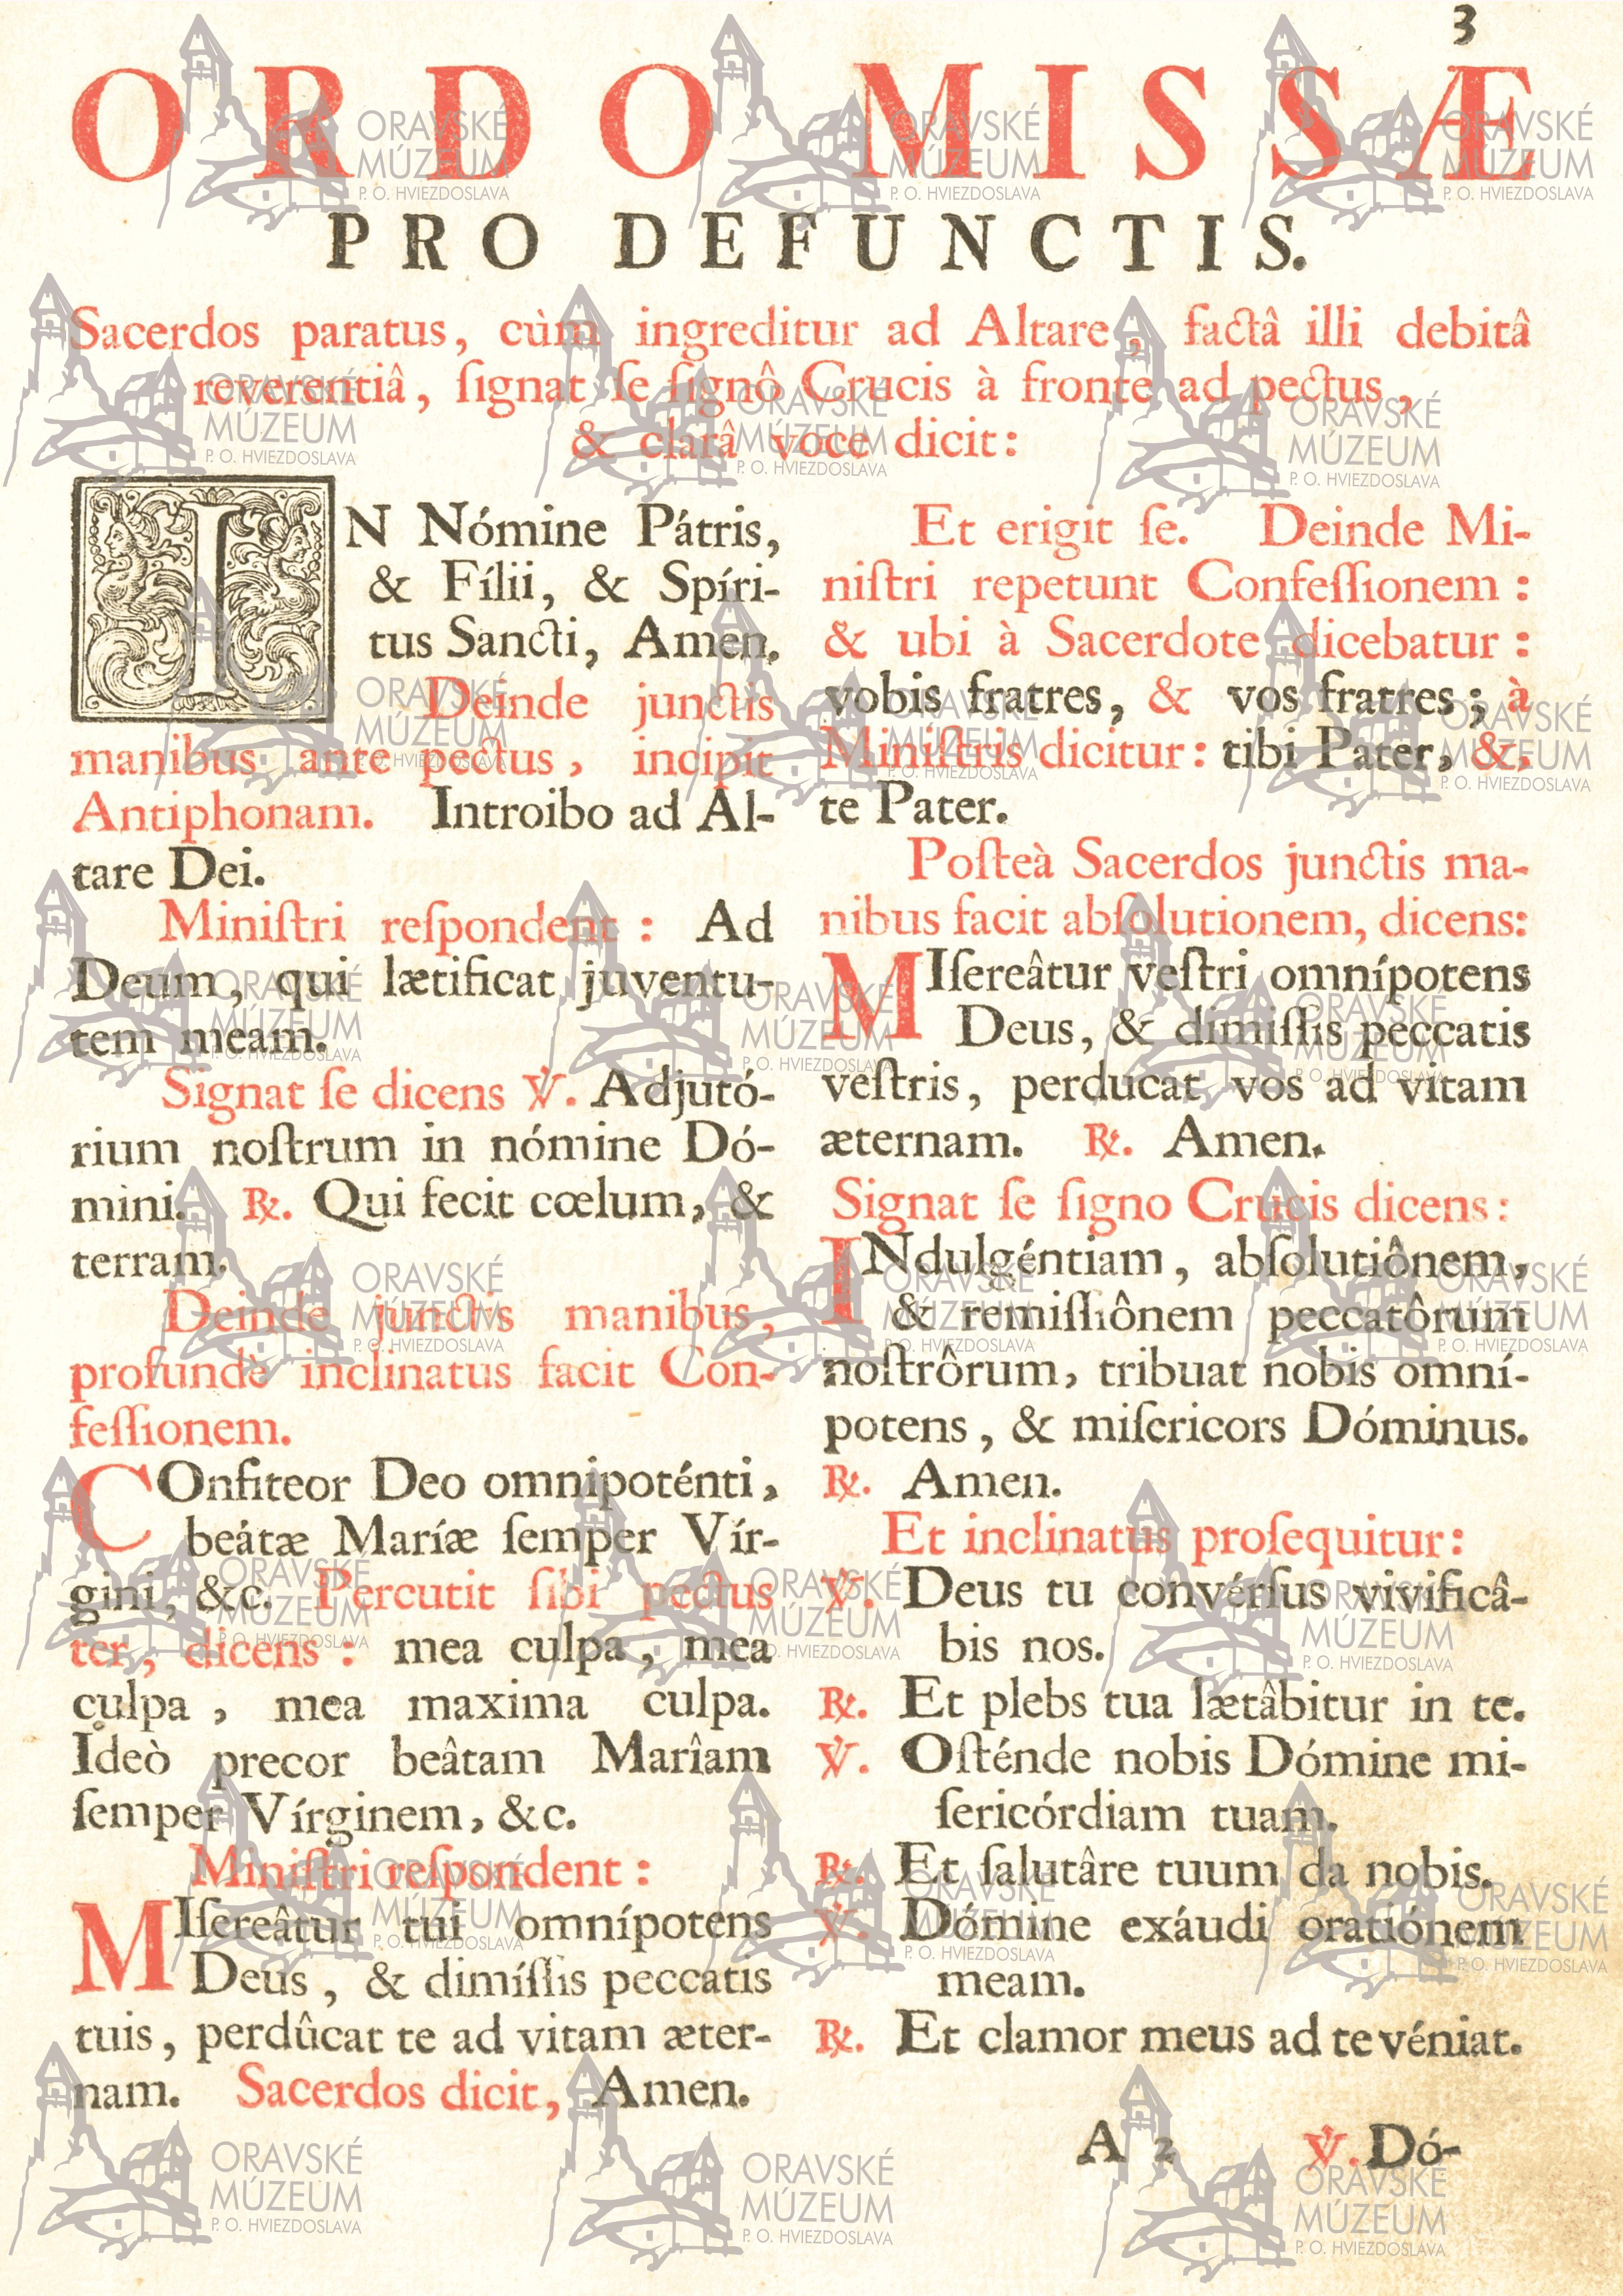 3
ORDO MISSÆ
PRO DEFUNCTIS.
Sacerdos paratus, cùm ingreditur ad Altare, factâ illi debitâ
reverentiâ, ſignat ſe ſignô Crucis à fronte ad pectus,
& clarâ voce dicit:
IN Nómine Pátris,
& Fílii, & Spíri-
tus Sancti, Amen.
Deinde junctis
manibus ante pectus, incipit
Antiphonam. Introibo ad Al-
tare Dei.
Miniſtri reſpondent: Ad
Deum, qui lætificat juventu-
tem meam.
Signat ſe dicens ℣. Adjutó-
rium noſtrum in nómine Dó-
mini. ℟. Qui fecit cœlum, &
terram.
Deinde junctis manibus,
profundè inclinatus facit Con-
feſſionem.
COnfiteor Deo omnipoténti,
beátæ Maríæ ſemper Vír-
gini, &c. Percutit ſibi pectus
ter, dicens: mea culpa, mea
culpa, mea maxima culpa.
Ideò precor beâtam Marîam
ſemper Vírginem, &c.
Miniſtri reſpondent:
MIſereâtur tui omnípotens
Deus, & dimíſſis peccatis
tuis, perdûcat te ad vitam æter-
nam. Sacerdos dicit, Amen.
Et erigit ſe. Deinde Mi-
niſtri repetunt Confeſſionem:
& ubi à Sacerdote dicebatur:
vobis fratres, & vos fratres; à
Miniſtris dicitur: tibi Pater, &,
te Pater.
Poſteà Sacerdos junctis ma-
nibus facit abſolutionem, dicens:
MIſereâtur veſtri omnípotens
Deus, & dimiſſis peccatis
veſtris, perducat vos ad vitam
æternam. ℟. Amen.
Signat ſe ſigno Crucis dicens:
INdulgéntiam, abſolutiônem,
& remiſſiônem peccatôrum
noſtrôrum, tribuat nobis omní-
potens, & miſericors Dóminus.
℟. Amen.
Et inclinatus proſequitur:
℣. Deus tu convérſus vivificâ-
bis nos.
℟. Et plebs tua lætâbitur in te.
℣. Oſténde nobis Dómine mi-
ſericórdiam tuam.
℟. Et ſalutâre tuum da nobis.
℣. Dómine exáudi oratiónem
meam.
℟. Et clamor meus ad te véniat.
A 2 ℣. Dó-
ORAVSKÉ
MÚZEUM
P. O. HVIEZDOSLAVA